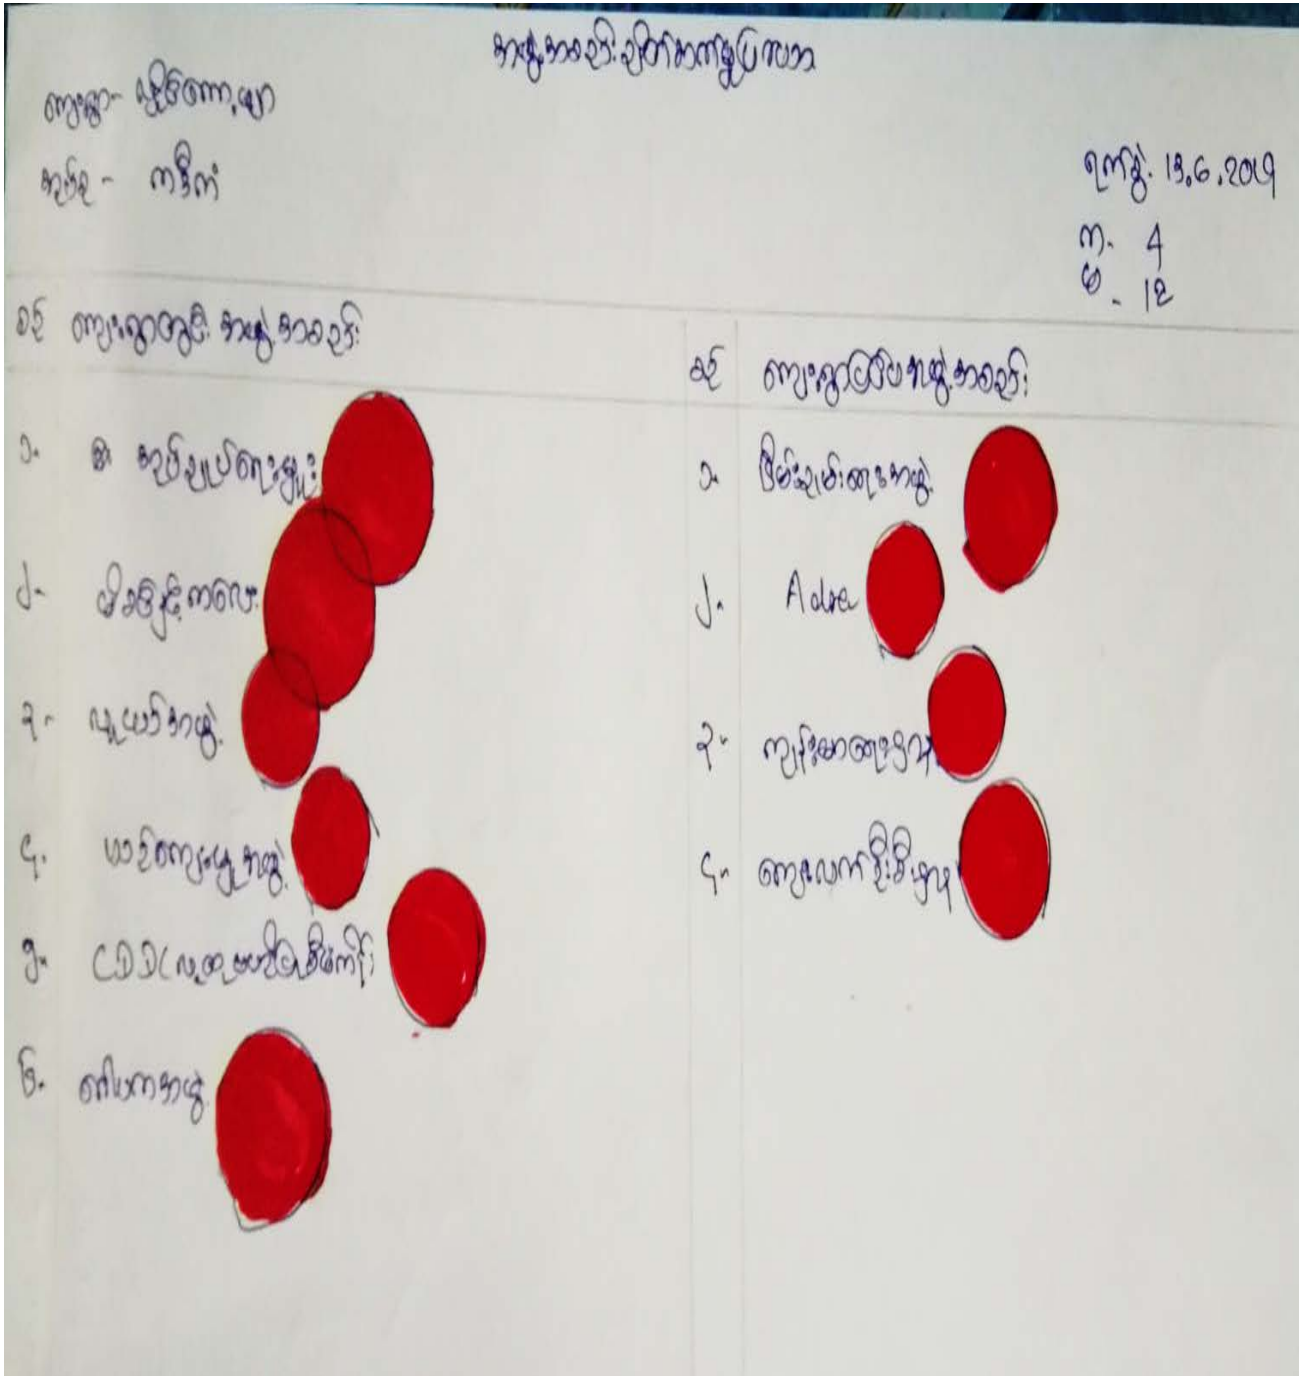 အဖွဲ့အစည်းချိတ်ဆက်မှုပြဇယား
ကျေးရွာ-
အုပ်စု - ကဒိုကံ
ရက်စွဲ. 13.6.2019
က. 4
မ - 12
စဉ် ကျေးရွာတွင်း အဖွဲ့အစည်း
၁. အုပ်ချုပ်ရေးမှူး
၂. မိခင်နှင့်ကလေး
၃. လူငယ်အဖွဲ့
၄. ယာဉ်ကျေးမှုအဖွဲ့
၅. CDD (လူထုဗဟိုပြုစီမံကိန်း)
၆. အဖွဲ့
စဉ် ကျေးရွာပြင်ပအဖွဲ့အစည်း
၁. ငြိမ်းချမ်းရေးအဖွဲ့
၂. Adra
၃. ကျန်းမာရေးဌာန
၄. ကျေးလက်ဦးစီးဌာန